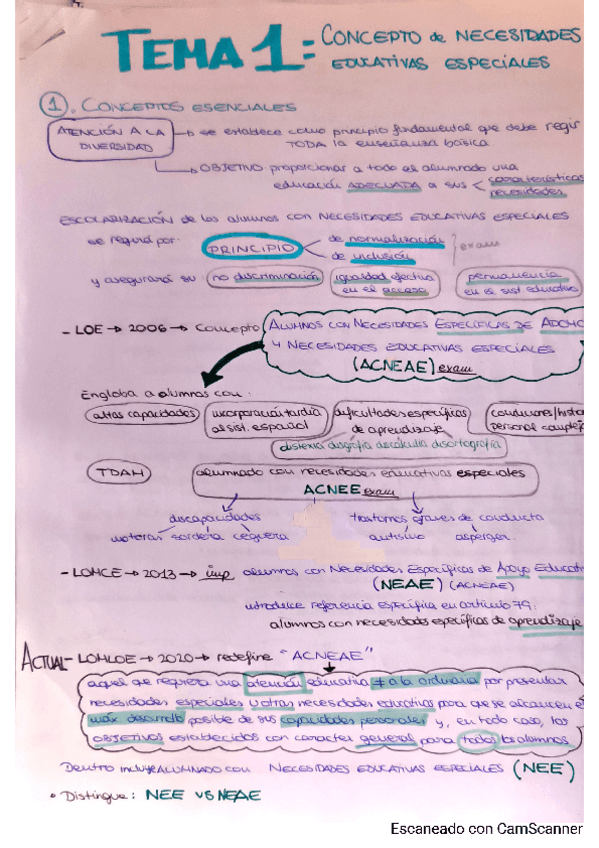 TEMA 1: CONCEPTO de NECESIDADES
EDUCATIVAS ESPECIALES
1. CONCEPTOS ESENCIALES
ATENCIÓN A LA DIVERSIDAD → se establece como principio fundamental que debe regir
TODA la enseñanza básica
→ OBJETIVO proporcionar a todo el alumnado una
educación ADECUADA a sus < características
necesidades
ESCOLARIZACIÓN de los alumnos con NECESIDADES EDUCATIVAS ESPECIALES
se regirá por: PRINCIPIO < de normalización
de inclusión } exam
y asegurará su no discriminación igualdad efectiva en el acceso permanencia en el sist educativo
- LOE → 2006 → Concepto ALUMNOS CON NECESIDADES ESPECÍFICAS DE
Y NECESIDADES EDUCATIVAS ESPECIALES
(ACNEAE) exam
Engloba a alumnos con:
altas capacidades incorporación tardía al sist. español dificultades específicas de aprendizaje
personal
dislexia disgrafia discalculia disortografía
TDAH alumnado con necesidades educativas especiales
ACNEE exam
discapacidades trastornos graves de conducta
motoras sordera ceguera autismo asperger
- LOMCE → 2013 → imp alumnos con Necesidades Específicas de Apoyo
(NEAE) (ACNEAE)
introduce referencia específica en artículo 79:
alumnos con necesidades específicas de aprendizaje
ACTUAL - LOMLOE → 2020 → redefine "ACNEAE"
aquel que requiera una atención educativa ≠ a la ordinaria por presentar
necesidades especiales u otras necesidades educativas para que se alcancen el
máx desarrollo posible de sus capacidades personales y, en todo caso, los
OBJETIVOS establecidos con caracter general para todos los alumnos
Dentro incluye ALUMNADO CON NECESIDADES EDUCATIVAS ESPECIALES (NEE)
• Distingue: NEE VS NEAE
Escaneado con CamScanner